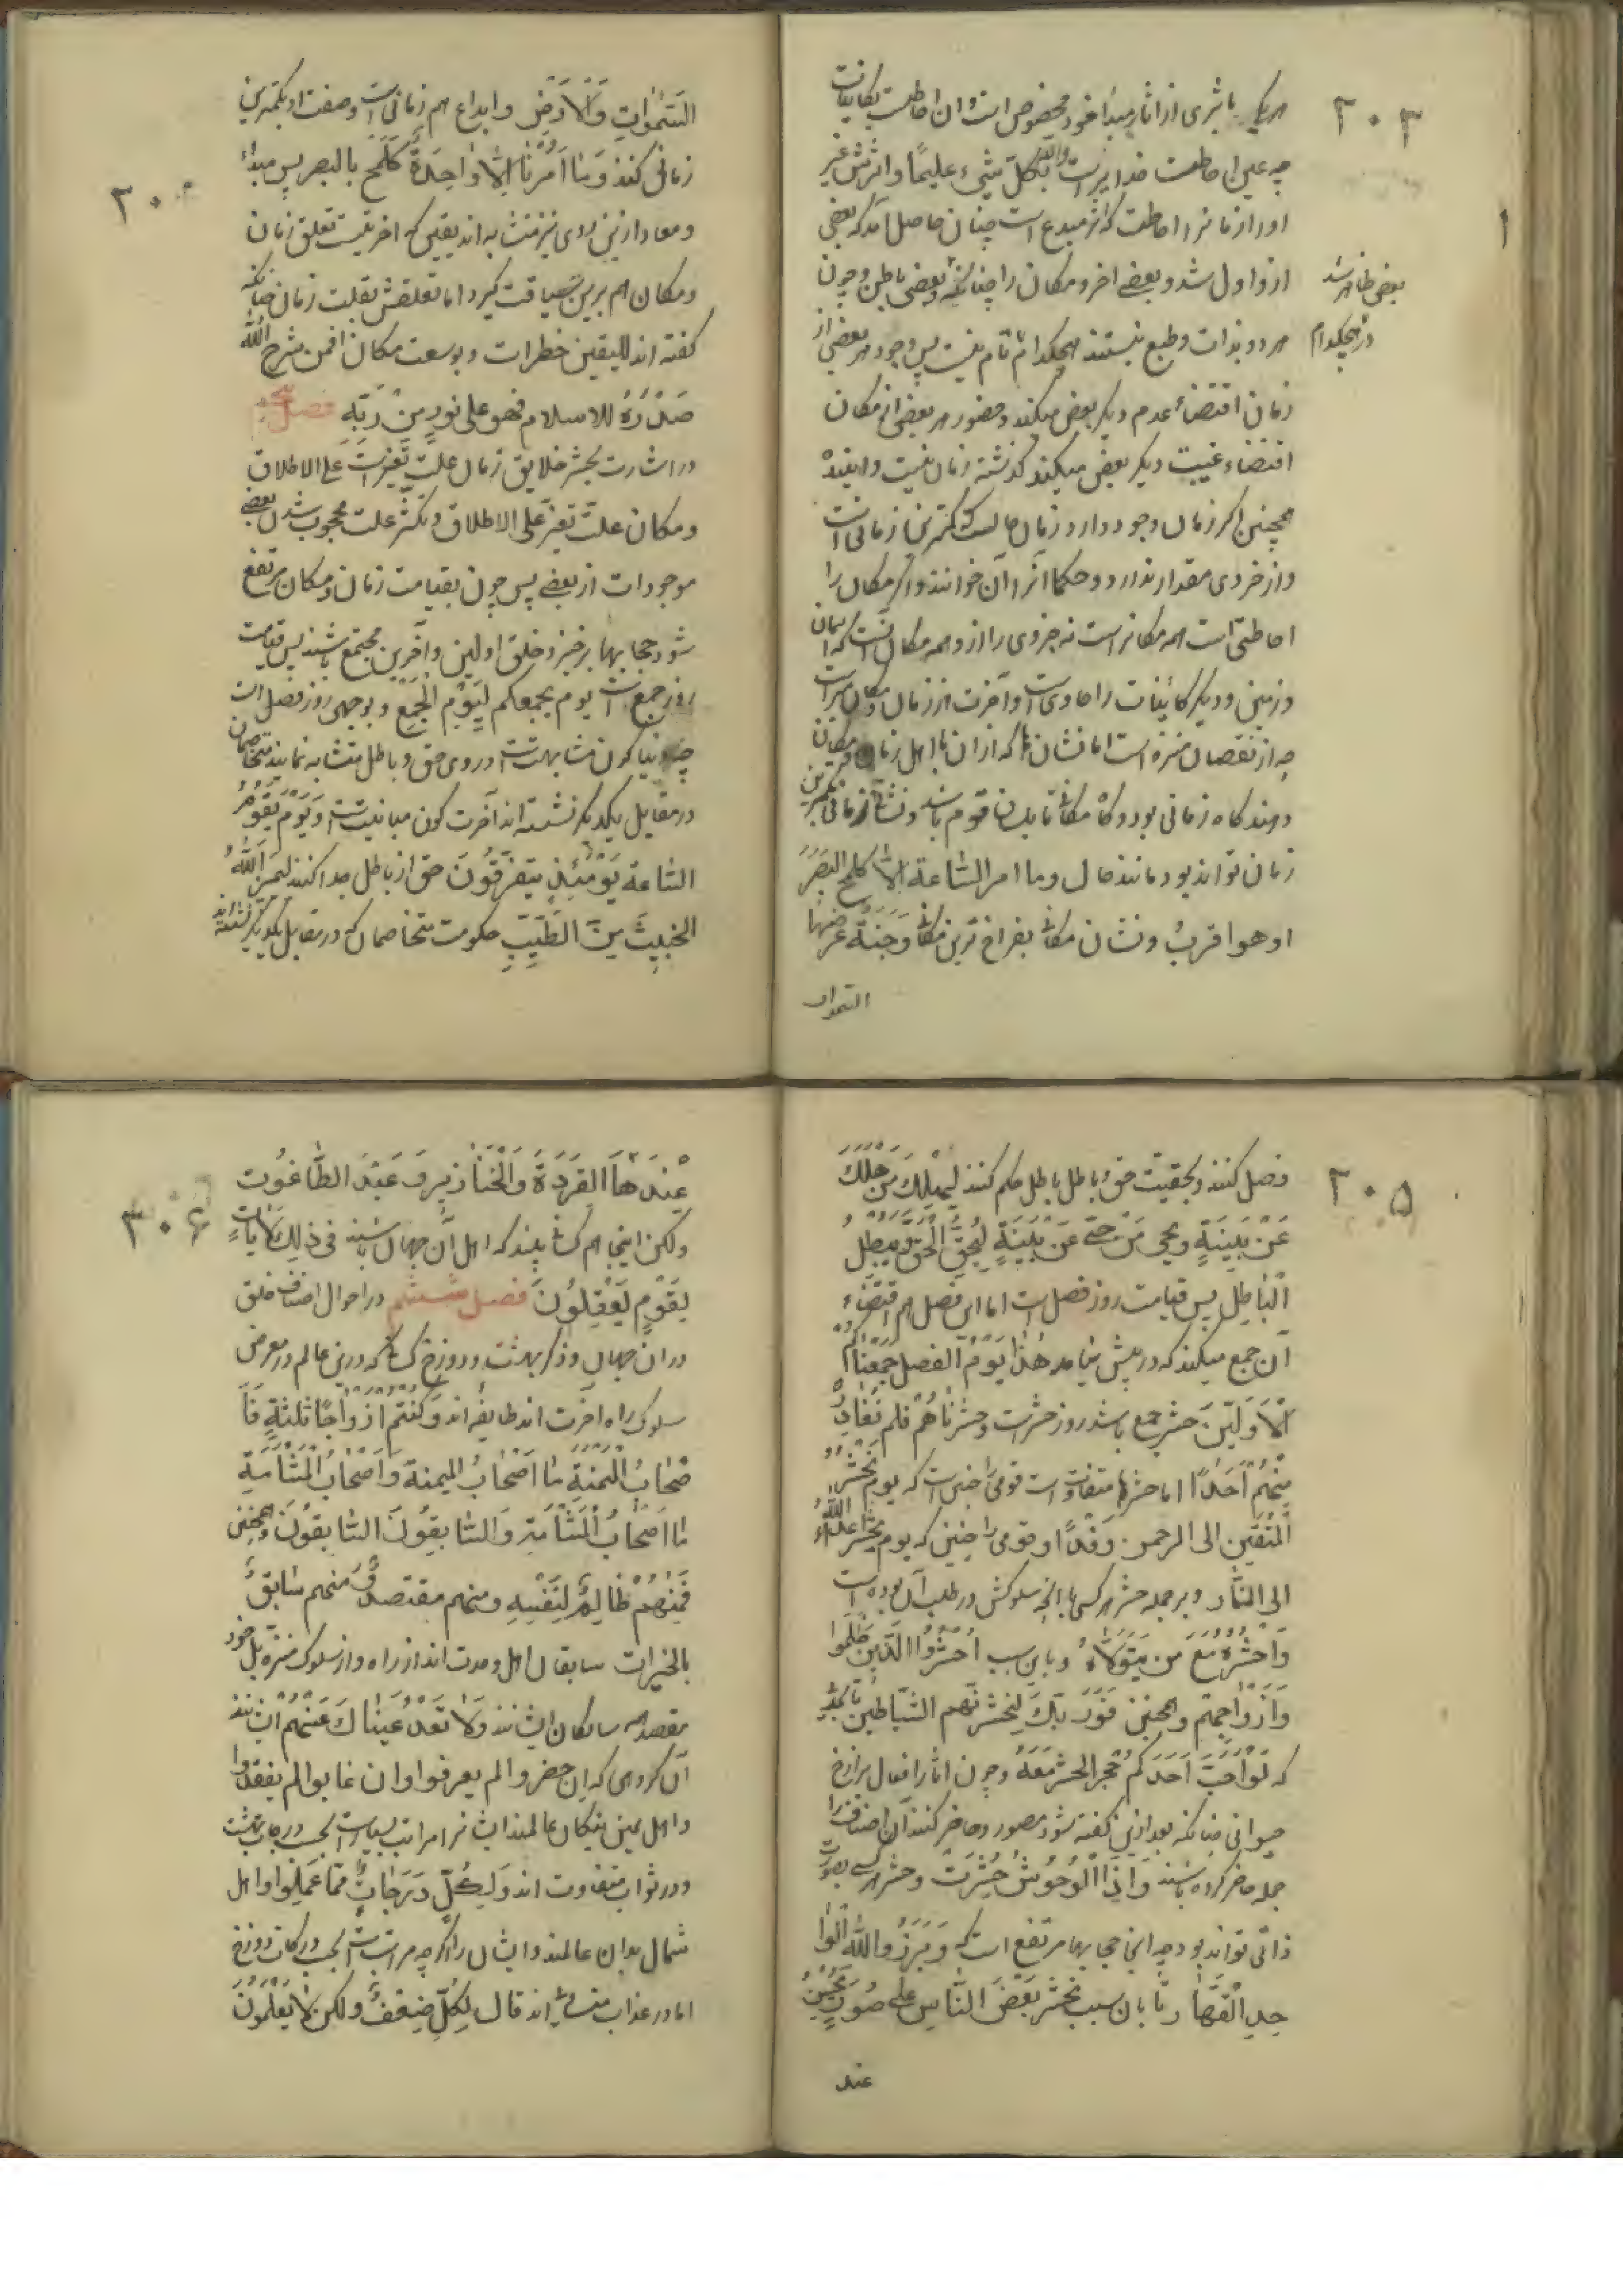 ۲۰۳
هریک باثری از اثار مبدأ خود مخصوص است و ان احاطت بکاینات
چه عین احاطت خدایراست والله بکل شیء علیما و اثرش غیر
اورا از مانرا احاطت که از مبدع است چنان حاصل آمد که بعضی
ازو اول شد و بعضے اخر و مکان را چنانکه و بعضی باطن و چون
بعضی ظاهر شد
هر دو بذات و طبع نیستند هیچکدام تام نیست پس وجود هر بعضی از
در هیچکدام
زمان اقتضاء عدم دیگر بعض میکند و حضور هر بعضی از مکان
اقتضاء غیبت دیگر بعض میکند گذشته زمان نیست و اینده
همچنین اگر زمان وجود دارد زمان حالست که کمترین زمانی است
و از خردی مقدار ندارد و حکما آنرا آن خوانند و اگر مکان را
احاطتی است همه مکانراست نه جزوی را از و همه مکان آنست که اسمان
و زمین و دیگر کائنات را حاویست و آخرت از زمان و مکان مبراست
چه از نقصان منزه است اما نشانها که از ان با اهل زمان و مکان
دهند گاه زمانی بود و گاه مکانی تا بلسان قوم باشد و نشان زمانی بکمترین
زمان تواند بود مانند حال وما امر الساعة الا کلمح البصر
او هو اقرب و نشان مکانی بفراخ ترین مکانی وجنة عرضها
السموات
السموات والارض و ابداع هم زمانی است و صفت او بکمترین
زمانی کنند وما امرنا الا واحدة کلمح بالبصر پس مبداء
۲۰
و معاد ازین روی نیز متشابه اند یقین که اخریست تعلق زمان
و مکان هم برین سیاقت گیرد اما تعلقش بقلت زمان چنانکه
گفته اند للیقین خطرات و بوسعت مکان افمن شرح الله
صدره للاسلام فهو علی نور من ربه فصل پنجم
در اشارت بحشر خلایق زمان علت تغیرست علی الاطلاق
و مکان علت تغیر علی الاطلاق و تکثر علت محجوب شدن بعضے
موجودات از بعضے پس چون بقیامت زمان و مکان مرتفع
شود حجابها برخیزد و خلق اولین و آخرین مجتمع باشند پس قیامت
روز جمع است یوم یجمعکم لیوم الجمع و بوجهی روز فصل است
چه دنیا کون مشابهتست در وی حق و باطل متشابه نماید متخاصمان
در مقابل یکدیگر نشسته اند آخرت کون مباینتست ویوم تقوم
الساعة یومئذ یتفرقون حق از باطل جدا کنند لیمیز الله
الخبیث من الطیب حکومت متخاصمان که در مقابل یکدیگر نشسته اند
۲۰۵
فصل کنند و بحقیت حق و باطل باطل حکم کنند لیهلک من هلک
عن بینة ویحیی من حی عن بینة لیحق الحق ویبطل
الباطل پس قیامت روز فصل است اما این فصل هم اقتضاء
آن جمع میکند که در پیش بیامد هذا یوم الفصل جمعناکم
والاولین حشر جمع باشد روز حشرست وحشرناهم فلم نغادر
منهم احدا اما حشرها متفاوت است قومی را چنین است که یوم نحشر
المتقین الی الرحمن وفدا و قومی را چنین که یوم یحشر اعداء الله
الی النار و بر جمله حشر هر کسی با انچه سلوکش در طلب آن بوده است
واحشره مع من یتولاه و باین سبب احشروا الذین ظلموا
وازواجهم و همچنین فوربک لنحشرنهم والشیاطین تا بحدیکه
که لو احب احدکم حجر الحشر معه و چون اثار افعال برازخ
حیوانی چنانکه بعد ازین گفته شود مصور و حاضر کنند آن اصناف را
جمله حاضر کرده باشند واذا الوحوش حشرت و حشر هر کسے بصورت
ذاتی تواند بود چه انجا حجابها مرتفع است که وبرزوا لله الوا
حد القهار تا بان سبب یحشر بعض الناس علی صور یحسن
عند
عندها القردة والخنازیر وعبد الطاغوت
۲۰۶
و لکن اینجا هم کسانی بینند که اهل آن جهان باشند فی ذلک لایات
لقوم یعقلون فصل ششم در احوال اصناف خلق
در ان جهان و ذکر بهشت و دوزخ کسانی که درین عالم در معرض
سلوک راه اخرت اند طایفه اند وکنتم ازواجا ثلثة فا
صحاب المیمنة ما اصحاب المیمنة واصحاب المشأمة
ما اصحاب المشأمة والسابقون السابقون و همچنین
فمنهم ظالم لنفسه ومنهم مقتصد ومنهم سابق
بالخیرات سابقان اهل وحدت اند از راه و از سلوک منزه بل خود
مقصد همه سالکان ایشانند ولا تعد عیناک عنهم ایشانند
آن گروهی که ان حضروا لم یعرفوا وان غابوا لم یفقدوا
و اهل یمین نیکان عالمند ایشانرا مراتب بسیارست بحسب درجات بهشت
و در ثواب متفاوت اند ولکل درجات مما عملوا و اهل
شمال بدان عالمند و ایشان را اگرچه مراتبست بحسب درکات دوزخ
اما در عذاب متساوی اند قال لکل ضعف ولکن لا یعلمون